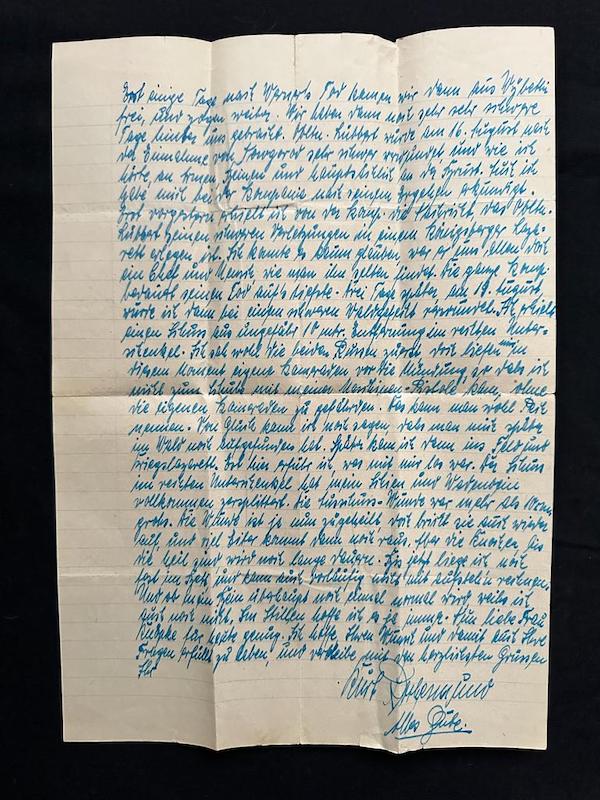 Erst einige Tage nach Werners Tod kamen wir dann aus
frei, und zogen weiter. Wir haben dann noch sehr sehr schwere
Tage hinter uns gebracht. Obltn. Lübbert wurde am 16. August nach
der Einnahme von Nowgorod sehr schwer verwundet, und wie ich
hörte, an Armen, Beinen und hauptsächlich in der Brust. Auch ich
habe mich bei der Kompanie nach seinem Ergehen erkundigt.
Erst vorgestern erhielt ich von der Komp. die Nachricht, das Obltn.
Lübbert seinen schweren Verletzungen in einem Königsberger Laza-
rett erlegen ist. Ich konnte es kaum glauben, war er uns allen doch
ein Chef und Mensch wie man ihn selten findet. Die ganze Komp.
bedauert seinen Tod auf's tiefste. Drei Tage später am 19. August
wurde ich dann bei einem schweren Waldgefecht verwundet. Ich erhielt
einen Schuss aus ungefähr 10 mtr. Entfernung im rechten Unter-
schenkel. Ich sah wohl die beiden Russen zuerst, doch liefen mir in
diesem Moment eigene Kameraden vor die Mündung, so dass ich
nicht zum Schuss mit meiner Maschinen-Pistole kam, ohne
die eigenen Kameraden zu gefährden. Das kann man wohl Pech
nennen. Von Glück kann ich noch sagen, dass man mich später
im Wald noch aufgefunden hat. Später kam ich dann ins Feld und
Kriegslazarett. Erst hier erfuhr ich, was mit mir los war. Der Schuss
im rechten Unterschenkel hat mein Schien und Wadenbein
vollkommen zersplittert. Die Ausschuss-Wunde war mehr als
gross. Die Wunde ist ja nun zugeheilt doch bricht sie auch wieder
auf, und viel Eiter kommt dann noch raus. Aber die Knochen, bis
die heil sind wird noch lange dauern. Bis jetzt liege ich noch
fest im Bett und kann auch vorläufig nicht mit aufstehen rechnen.
Und ob mein Bein überhaupt noch einmal normal wird weiss ich
auch noch nicht. Im Stillen hoffe ich es ja immer. Nun liebe Frau
für heute genug. Ich hoffe, Ihren Wunsch und damit auch Ihre
Fragen erfüllt zu haben, und verbleibe mit den herzlichsten Grüssen
Ihr
Kurt
Alles Gute.